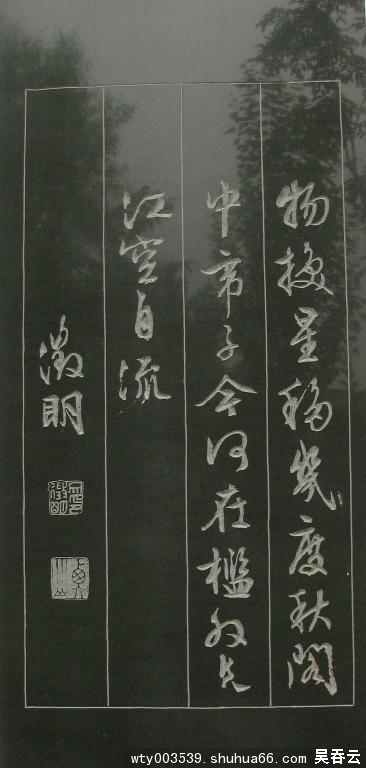 物換星移幾度秋閣
中帝子今何在檻外長
江空自流
徵明
wty003539.shuhua66.com 吴吞云